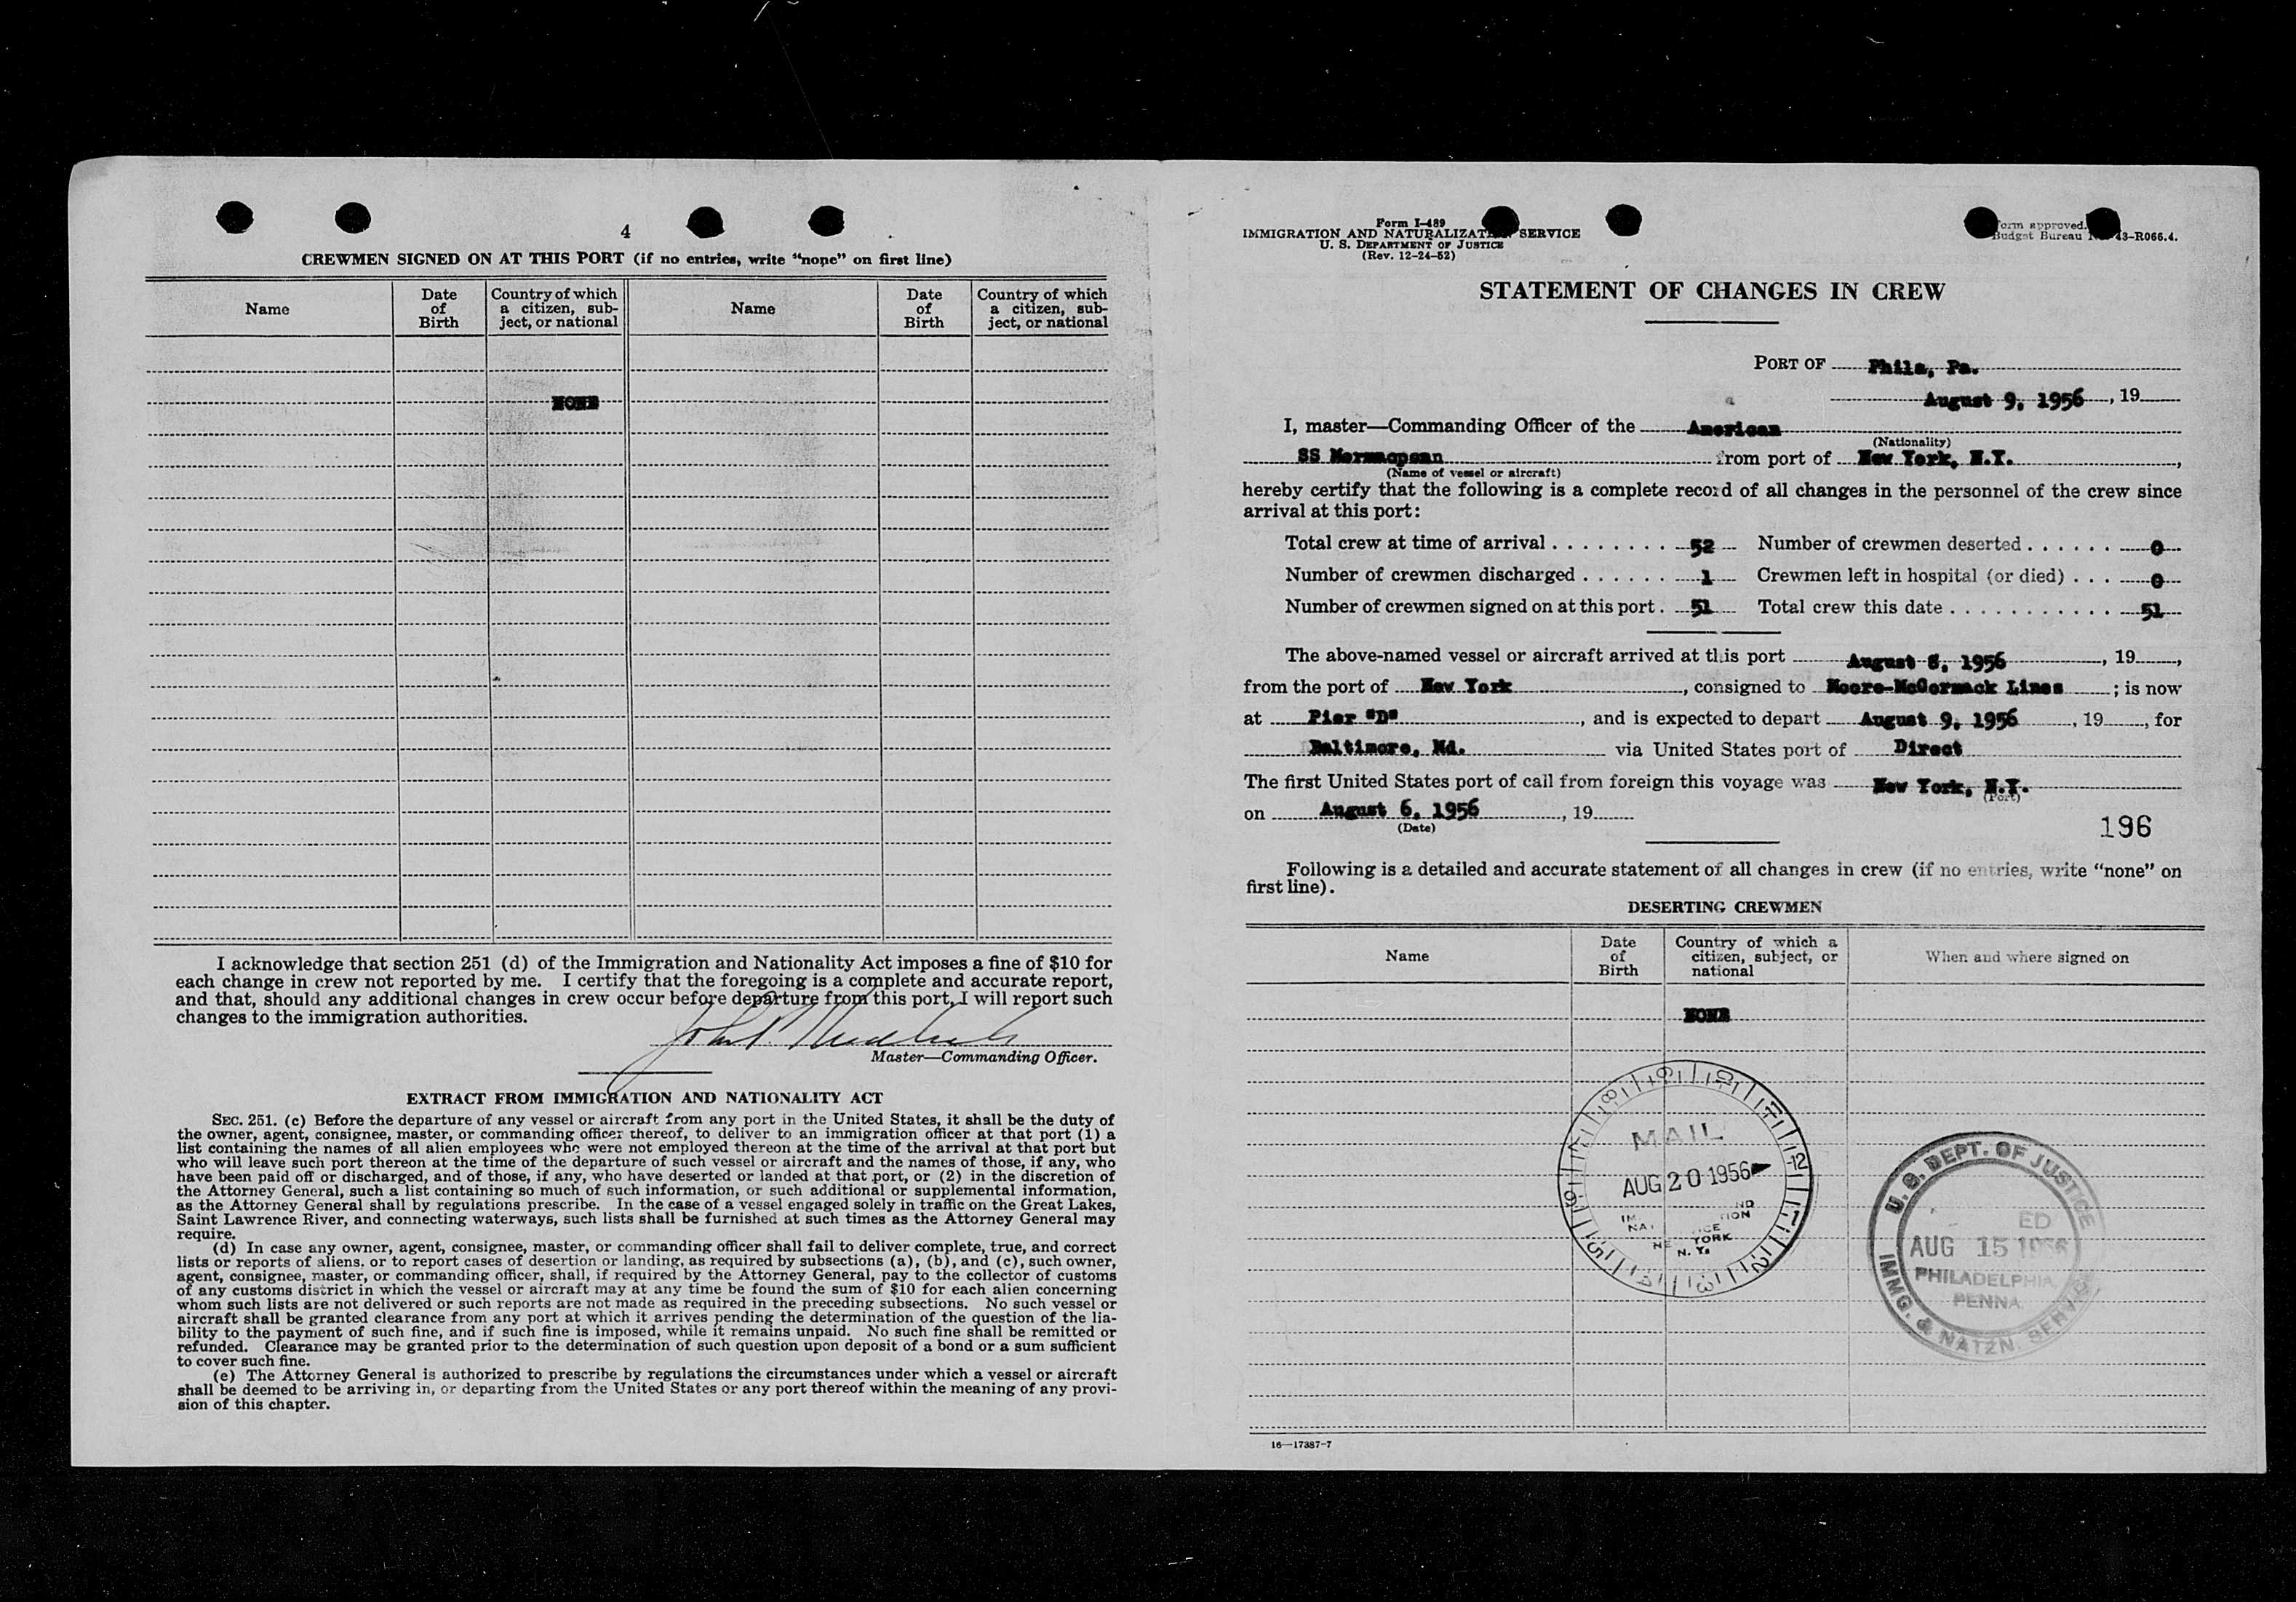 4
CREWMEN SIGNED ON AT THIS PORT (if no entries, write "none" on first line)
Name
Date of Birth
Country of which a citizen, subject, or national
Name
Date of Birth
Country of which a citizen, subject, or national
NONE
I acknowledge that section 251 (d) of the Immigration and Nationality Act imposes a fine of $10 for
each change in crew not reported by me. I certify that the foregoing is a complete and accurate report,
and that, should any additional changes in crew occur before departure from this port, I will report such
changes to the immigration authorities.
Master—Commanding Officer.
EXTRACT FROM IMMIGRATION AND NATIONALITY ACT
SEC. 251. (c) Before the departure of any vessel or aircraft from any port in the United States, it shall be the duty of
the owner, agent, consignee, master, or commanding officer thereof, to deliver to an immigration officer at that port (1) a
list containing the names of all alien employees who were not employed thereon at the time of the arrival at that port but
who will leave such port thereon at the time of the departure of such vessel or aircraft and the names of those, if any, who
have been paid off or discharged, and of those, if any, who have deserted or landed at that port, or (2) in the discretion of
the Attorney General, such a list containing so much of such information, or such additional or supplemental information,
as the Attorney General shall by regulations prescribe. In the case of a vessel engaged solely in traffic on the Great Lakes,
Saint Lawrence River, and connecting waterways, such lists shall be furnished at such times as the Attorney General may
require.
(d) In case any owner, agent, consignee, master, or commanding officer shall fail to deliver complete, true, and correct
lists or reports of aliens, or to report cases of desertion or landing, as required by subsections (a), (b), and (c), such owner,
agent, consignee, master, or commanding officer, shall, if required by the Attorney General, pay to the collector of customs
of any customs district in which the vessel or aircraft may at any time be found the sum of $10 for each alien concerning
whom such lists are not delivered or such reports are not made as required in the preceding subsections. No such vessel or
aircraft shall be granted clearance from any port at which it arrives pending the determination of the question of the lia-
bility to the payment of such fine, and if such fine is imposed, while it remains unpaid. No such fine shall be remitted or
refunded. Clearance may be granted prior to the determination of such question upon deposit of a bond or a sum sufficient
to cover such fine.
(e) The Attorney General is authorized to prescribe by regulations the circumstances under which a vessel or aircraft
shall be deemed to be arriving in, or departing from the United States or any port thereof within the meaning of any provi-
sion of this chapter.
Form I-489
IMMIGRATION AND NATURALIZATION SERVICE
U. S. DEPARTMENT OF JUSTICE
(Rev. 12-24-52)
Form approved.
Budget Bureau 43-R066.4.
STATEMENT OF CHANGES IN CREW
PORT OF Phila, Pa.
August 9, 1956, 19
I, master—Commanding Officer of the American
(Nationality)
SS Mormacpenn from port of New York, N.Y.,
(Name of vessel or aircraft)
hereby certify that the following is a complete record of all changes in the personnel of the crew since
arrival at this port:
Total crew at time of arrival 52 Number of crewmen deserted 0
Number of crewmen discharged 1 Crewmen left in hospital (or died) 0
Number of crewmen signed on at this port 51 Total crew this date 51
The above-named vessel or aircraft arrived at this port August 8, 1956, 19,
from the port of New York, consigned to Moore-McCormack Lines; is now
at Pier "D", and is expected to depart August 9, 1956, 19, for
Baltimore, Md. via United States port of Direct
The first United States port of call from foreign this voyage was New York, N.Y.
(Port)
on August 6, 1956, 19
(Date)
196
Following is a detailed and accurate statement of all changes in crew (if no entries, write "none" on
first line).
DESERTING CREWMEN
Name
Date of Birth
Country of which a citizen, subject, or national
When and where signed on
NONE
MAIL
AUG 20 1956
NEW YORK
N. Y.
U. S. DEPT. OF JUSTICE
AUG 15 1956
PHILADELPHIA
PENNA
IMMG. & NATZN. SERVICE
16—17387-7